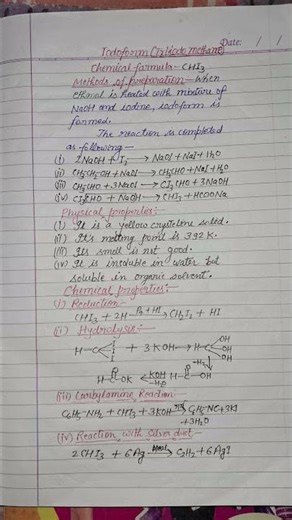 Date: / /
Iodoform (Triiodo methane)
Chemical formula - CHI3
Methods of preparation - When
ethnol is heated with mixture of
NaOH and iodine, iodoform is
formed.
The reaction is completed
as following -
(i) 2NaOH + I2 → NaOI + NaI + H2O
(ii) CH3CH2OH + NaOI → CH3CHO + NaI + H2O
(iii) CH3CHO + 3NaOI → CI3CHO + 3NaOH
(iv) CI3CHO + NaOH → CHI3 + HCOONa
Physical properties:-
(i) It is a yellow crystelene solid.
(ii) It's melting point is 392K.
(iii) Its smell is not good.
(iv) It is insoluble in water but
soluble in organic solvent.
Chemical properties:-
(i) Reduction -
CHI3 + 2H P4 + HI → CH2I2 + HI
(ii) Hydrolysis:-
H-C I I I + 3KOH → H-C OH OH OH
-H2O
H-C-OK O ← KOH H2O H-C-OH O
(iii) Carbylamine Reaction
C6H5NH2 + CHI3 + 3KOH → C6H5NC + 3KI
+3H2O
(iv) Reaction with Silver dust -
2CHI3 + 6Ag heat → C2H2 + 6AgI